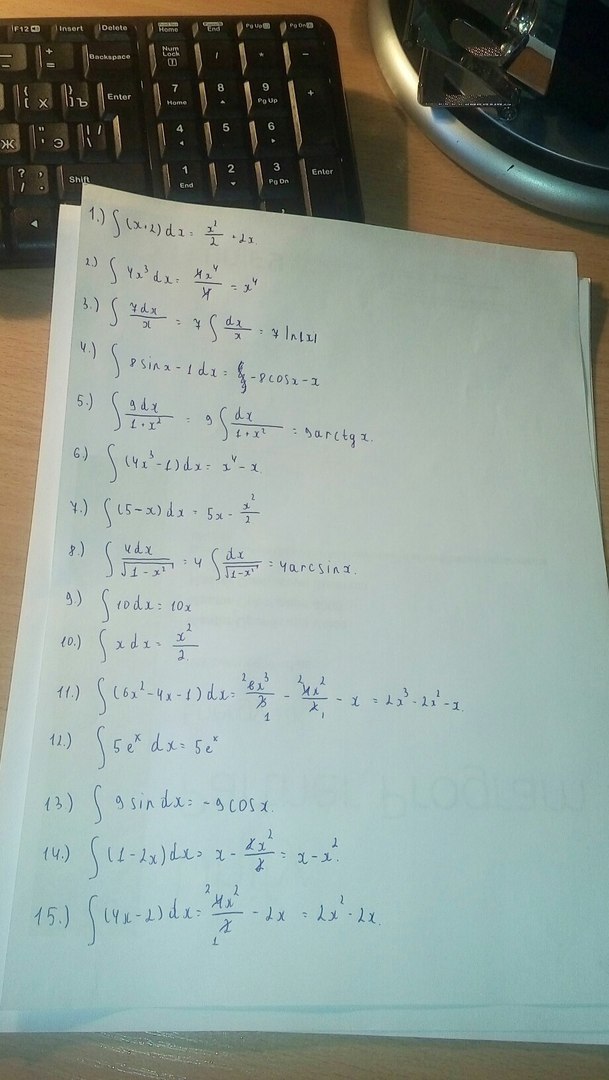 F12 Insert Delete Home End Pg Up Pg Dn
+ = Backspace Num Lock / * -
{ [ Х } ] Ъ Enter 7 Home 8 9 Pg Up +
Ж " ' Э | \ 4 5 6
? / . Shift 1 End 2 3 Pg Dn Enter
1.) ∫ (x+2) dx = x²/2 + 2x
2.) ∫ 4x³ dx = 4x⁴/4 = x⁴
3.) ∫ 7dx/x = 7 ∫ dx/x = 7 ln|x|
4.) ∫ 8 sin x - 1 dx = -8 cos x - x
5.) ∫ 9dx/(1+x²) = 9 ∫ dx/(1+x²) = 9 arctg x.
6.) ∫ (4x³-1) dx = x⁴ - x.
7.) ∫ (5-x) dx = 5x - x²/2
8.) ∫ 4dx/√(1-x²) = 4 ∫ dx/√(1-x²) = 4 arcsin x.
9.) ∫ 10 dx = 10x
10.) ∫ x dx = x²/2.
11.) ∫ (6x²-4x-1) dx = ²6x³/3₁ - ²4x²/2₁ - x = 2x³ - 2x² - x.
12.) ∫ 5eˣ dx = 5eˣ
13.) ∫ 9 sin dx = -9 cos x.
14.) ∫ (1-2x) dx = x - 2x²/2 = x - x².
15.) ∫ (4x-2) dx = ²4x²/2₁ - 2x = 2x² - 2x.